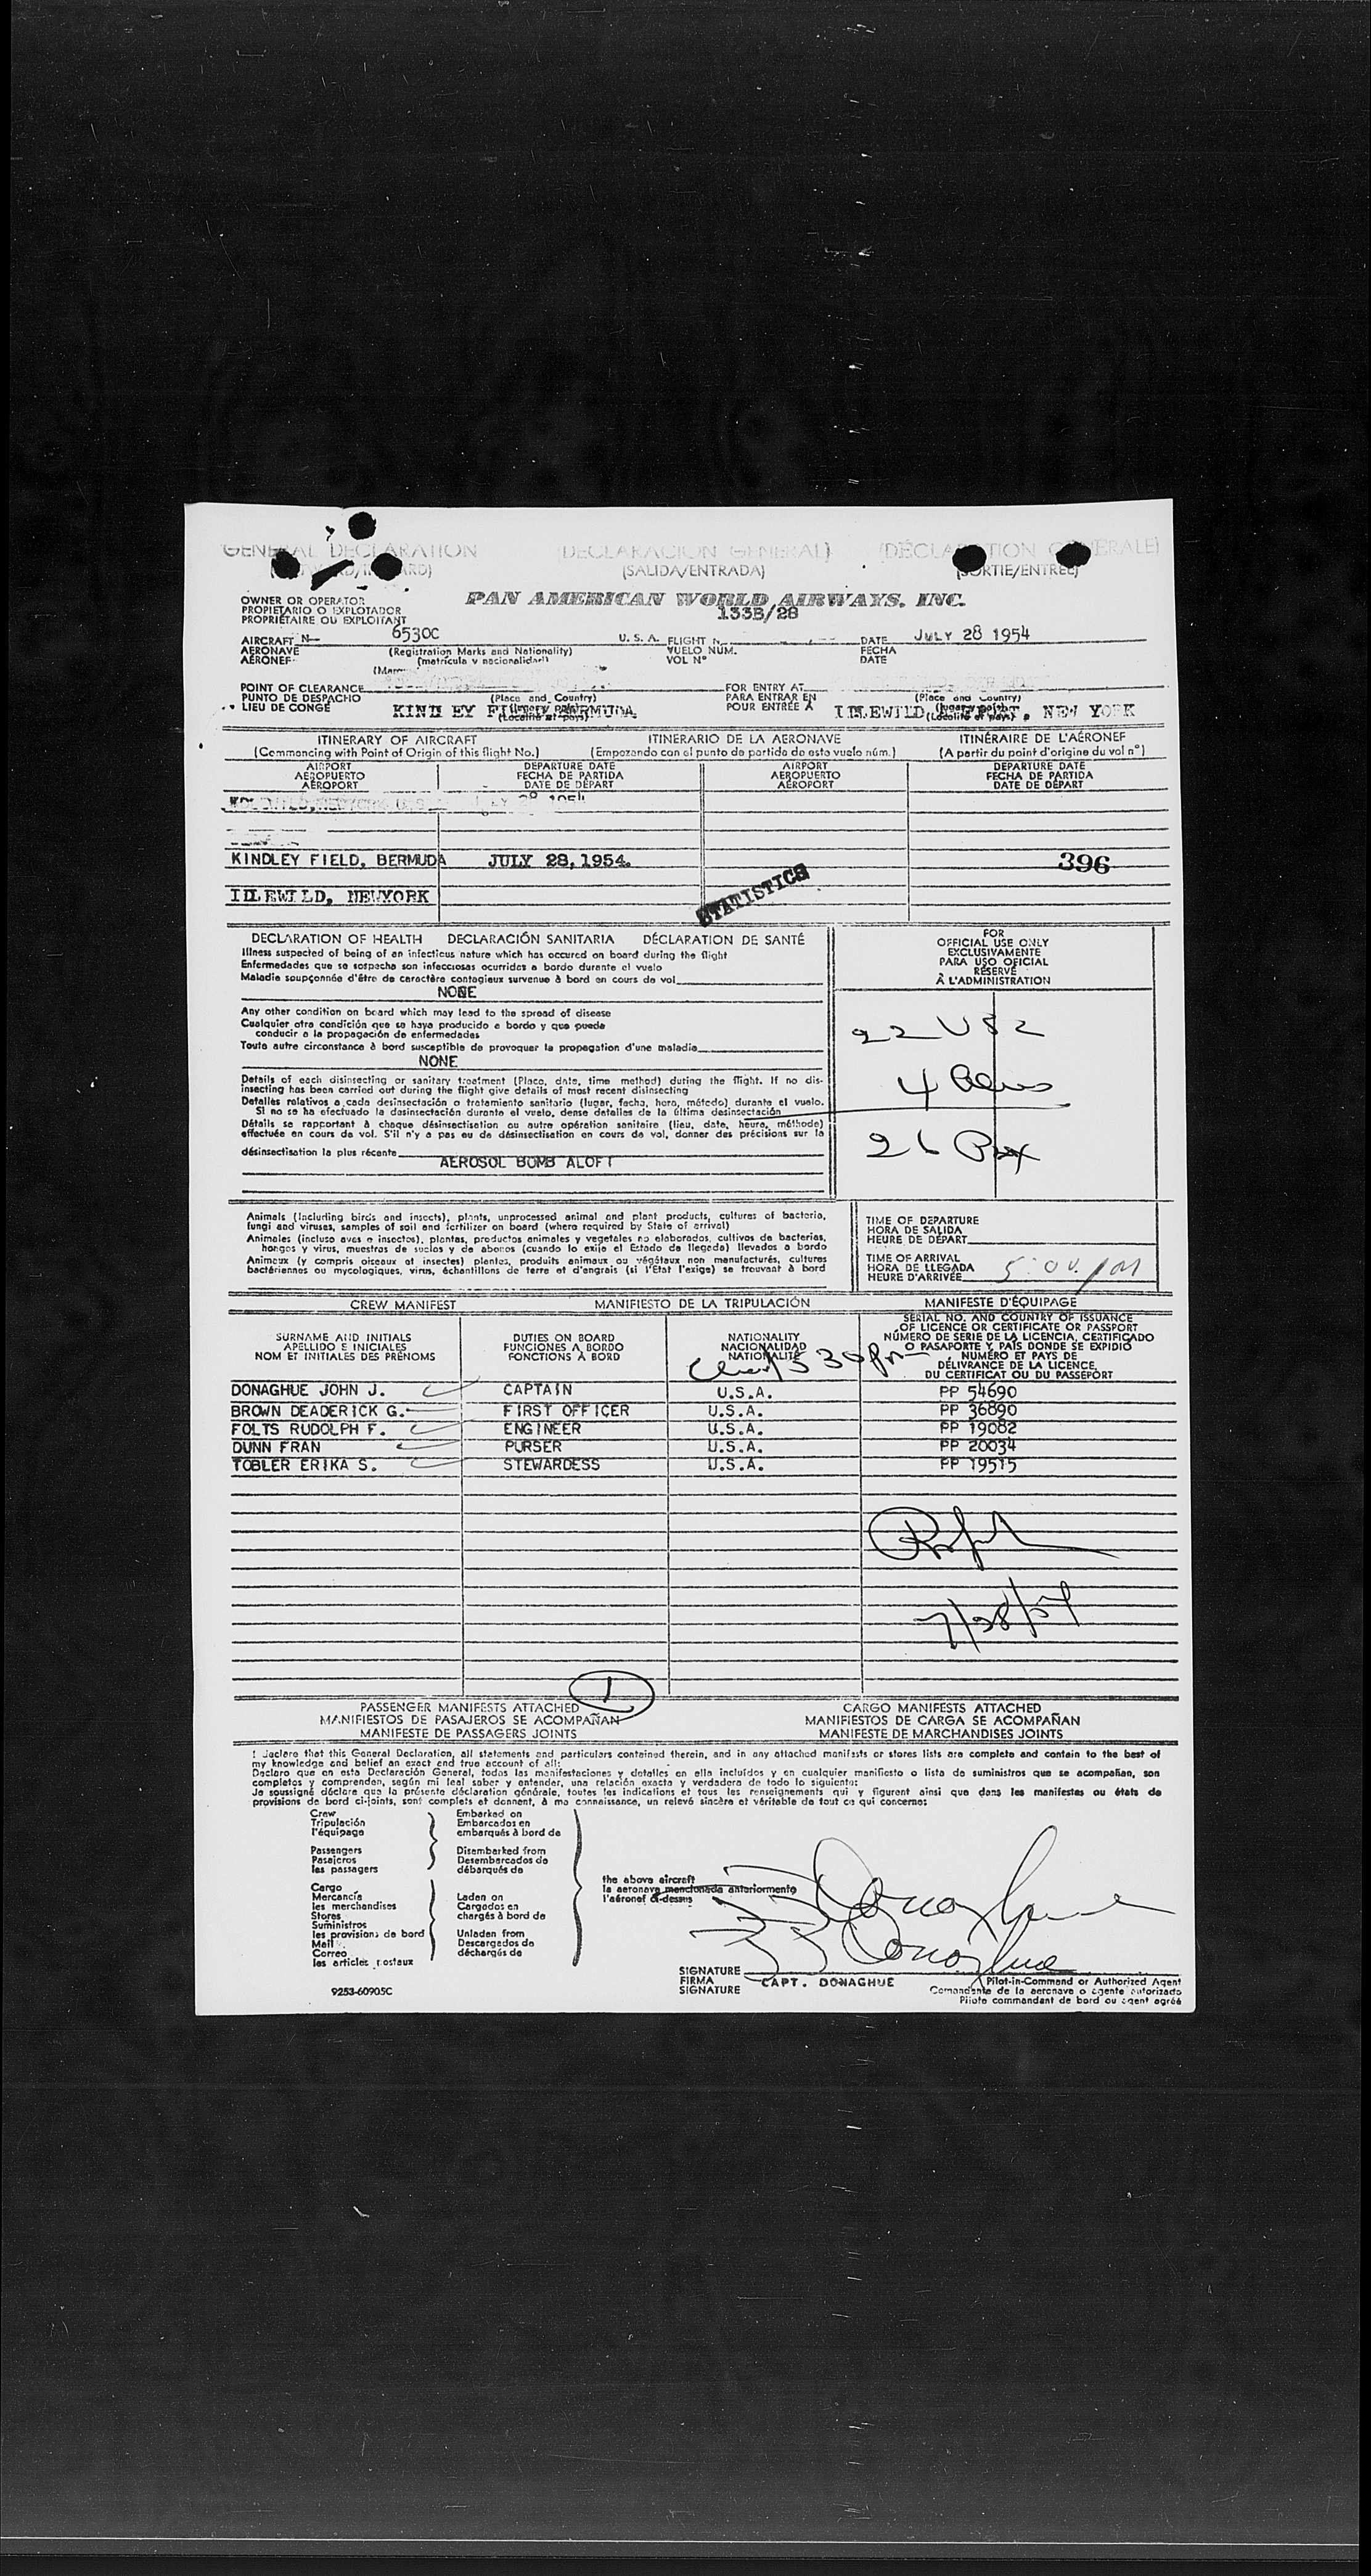 GENERAL DECLARATION (DECLARACION GENERAL) (DÉCLARATION GÉNÉRALE)
(SALIDA/ENTRADA) (SORTIE/ENTRÉE)
OWNER OR OPERATOR
PROPIETARIO O EXPLOTADOR
PROPRIÉTAIRE OU EXPLOITANT
PAN AMERICAN WORLD AIRWAYS, INC.
133B/28
AIRCRAFT N- 6530C U. S. A. FLIGHT N DATE JULY 28 1954
AERONAVE (Registration Marks and Nationality) VUELO NUM. FECHA
AÉRONEF (matrícula y nacionalidad) VOL N° DATE
POINT OF CLEARANCE FOR ENTRY AT
PUNTO DE DESPACHO (Place and Country) PARA ENTRAR EN (Place and Country)
LIEU DE CONGÉ KINDLEY FIELD, BERMUDA POUR ENTRÉE A IDLEWILD, NEW YORK
ITINERARY OF AIRCRAFT ITINERARIO DE LA AERONAVE ITINÉRAIRE DE L'AÉRONEF
(Commencing with Point of Origin of this flight No.) (Empezando con el punto de partida de este vuelo núm.) (A partir du point d'origine du vol n°)
AIRPORT DEPARTURE DATE AIRPORT DEPARTURE DATE
AEROPUERTO FECHA DE PARTIDA AEROPUERTO FECHA DE PARTIDA
AÉROPORT DATE DE DÉPART AÉROPORT DATE DE DÉPART
KINDLEY FIELD, BERMUDA JULY 28, 1954. 396
IDLEWILD, NEWYORK
STATISTICS
DECLARATION OF HEALTH DECLARACIÓN SANITARIA DÉCLARATION DE SANTÉ
Illness suspected of being of an infectious nature which has occured on board during the flight
Enfermedades que se sospecha son infecciosas ocurridas a bordo durante el vuelo
Maladie soupçonnée d'être de caractère contagieux survenue à bord en cours de vol
NONE
Any other condition on board which may lead to the spread of disease
Cualquier otra condición que se haya producido a bordo y que puede
conducir a la propagación de enfermedades
Toute autre circonstance à bord susceptible de provoquer la propagation d'une maladie
NONE
Details of each disinsecting or sanitary treatment (Place, date, time method) during the flight. If no dis-
insecting has been carried out during the flight give details of most recent disinsecting
Detalles relativos a cada desinsectación o tratamiento sanitario (lugar, fecha, hora, método) durante el vuelo.
Si no se ha efectuado la desinsectación durante el vuelo, dense detalles de la última desinsectación
Détails se rapportant à chaque désinsectisation ou autre opération sanitaire (lieu, date, heure, méthode)
effectuée en cours de vol. S'il n'y a pas eu de désinsectisation en cours de vol, donner des précisions sur la
désinsectisation la plus récente
AEROSOL BOMB ALOFT
FOR
OFFICIAL USE ONLY
EXCLUSIVAMENTE
PARA USO OFICIAL
RÉSERVÉ
À L'ADMINISTRATION
4 Aliens
26 Pax
Animals (Including birds and insects), plants, unprocessed animal and plant products, cultures of bacteria,
fungi and viruses, samples of soil and fertilizer on board (where required by State of arrival)
Animales (incluso aves e insectos), plantas, productos animales y vegetales no elaborados, cultivos de bacterias,
hongos y virus, muestras de suelos y de abonos (cuando lo exije el Estado de llegada) llevados a bordo
Animaux (y compris oiseaux et insectes) plantes, produits animaux ou végétaux non manufacturés, cultures
bactériennes ou mycologiques, virus, échantillons de terre et d'engrais (si l'État l'exige) se trouvant à bord
TIME OF DEPARTURE
HORA DE SALIDA
HEURE DE DÉPART
TIME OF ARRIVAL
HORA DE LLEGADA
HEURE D'ARRIVÉE 5:00 PM
CREW MANIFEST MANIFIESTO DE LA TRIPULACIÓN MANIFESTE D'ÉQUIPAGE
SURNAME AND INITIALS
APELLIDO E INICIALES
NOM ET INITIALES DES PRÉNOMS
DUTIES ON BOARD
FUNCIONES A BORDO
FONCTIONS À BORD
NATIONALITY
NACIONALIDAD
NATIONALITÉ
SERIAL NO. AND COUNTRY OF ISSUANCE
OF LICENCE OR CERTIFICATE OR PASSPORT
NÚMERO DE SERIE DE LA LICENCIA, CERTIFICADO
O PASAPORTE Y PAÍS DONDE SE EXPIDIÓ
NUMÉRO ET PAYS DE
DÉLIVRANCE DE LA LICENCE,
DU CERTIFICAT OU DU PASSEPORT
530 pm
DONAGHUE JOHN J. CAPTAIN U.S.A. PP 54690
BROWN DEADERICK G. FIRST OFFICER U.S.A. PP 36890
FOLTS RUDOLPH F. ENGINEER U.S.A. PP 19082
DUNN FRAN PURSER U.S.A. PP 20034
TOBLER ERIKA S. STEWARDESS U.S.A. PP 19515
7/28/54
1
PASSENGER MANIFESTS ATTACHED CARGO MANIFESTS ATTACHED
MANIFIESTOS DE PASAJEROS SE ACOMPAÑAN MANIFIESTOS DE CARGA SE ACOMPAÑAN
MANIFESTE DE PASSAGERS JOINTS MANIFESTE DE MARCHANDISES JOINTS
I declare that this General Declaration, all statements and particulars contained therein, and in any attached manifests or stores lists are complete and contain to the best of
my knowledge and belief an exact and true account of all:
Declaro que en esta Declaración General, todas las manifestaciones y detalles en ella incluídos y en cualquier manifiesto o lista de suministros que se acompañan, son
completos y comprenden, según mi leal saber y entender, una relación exacta y verdadera de todo lo siguiente:
Je soussigné déclare que la présente déclaration générale, toutes les indications et tous les renseignements qui y figurent ainsi que dans les manifestes ou états de
provisions de bord ci-joints, sont complets et donnent, à ma connaissance, un relevé sincère et véritable de tout ce qui concerne:
Crew Embarked on
Tripulación Embarcados en
l'équipage embarqués à bord de
Passengers Disembarked from
Pasajeros Desembarcados de
les passagers débarqués de
Cargo
Mercancía Laden on
les merchandises Cargados en
Stores chargés à bord de
Suministros
les provisions de bord Unladen from
Mail Descargados de
Correo déchargés de
les articles postaux
the above aircraft
la aeronave mencionada anteriormente
l'aéronef ci-dessus
J. J. Donaghue
SIGNATURE
FIRMA CAPT. DONAGHUE
SIGNATURE
Pilot-in-Command or Authorized Agent
Comandante de la aeronave o agente autorizado
Pilote commandant de bord ou agent agréé
9253-60905C